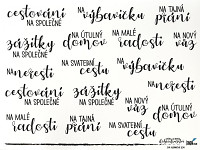 cestování
NA SPOLEČNÉ
NA
výbavičku
NA TAJNÁ
přání
zážitky
NA SPOLEČNÉ
NA ÚTULNÝ
domov
NA MALÉ
radosti
NA NOVÝ
vůz
NA
neřesti
NA SVATEBNÍ
cestu
NA
výbavičku
cestování
NA SPOLEČNÉ
zážitky
NA SPOLEČNÉ
NA NOVÝ
vůz
NA ÚTULNÝ
domov
NA MALÉ
radosti
NA TAJNÁ
přání
NA SVATEBNÍ
cestu
NA
neřesti